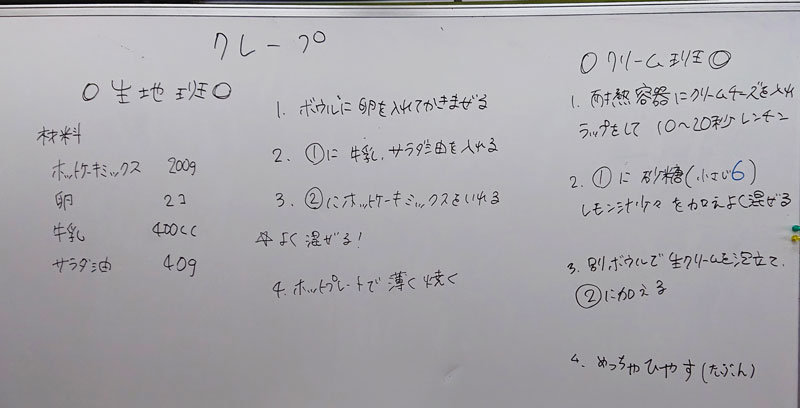 クレープ
○生地班○
材料
ホットケーキミックス 200g
卵 2コ
牛乳 400cc
サラダ油 40g
1. ボウルに卵を入れてかきまぜる
2. ①に牛乳、サラダ油を入れる
3. ②にホットケーキミックスをいれる
☆よく混ぜる!
4. ホットプレートで薄く焼く
○クリーム班○
1. 耐熱容器にクリームチーズを入れ
ラップをして10〜20秒レンチン
2. ①に砂糖(小さじ6)
レモン汁少々を加えよく混ぜる
3. 別ボウルで生クリームを泡立て、
②に加える
4. めっちゃひやす(たぶん)